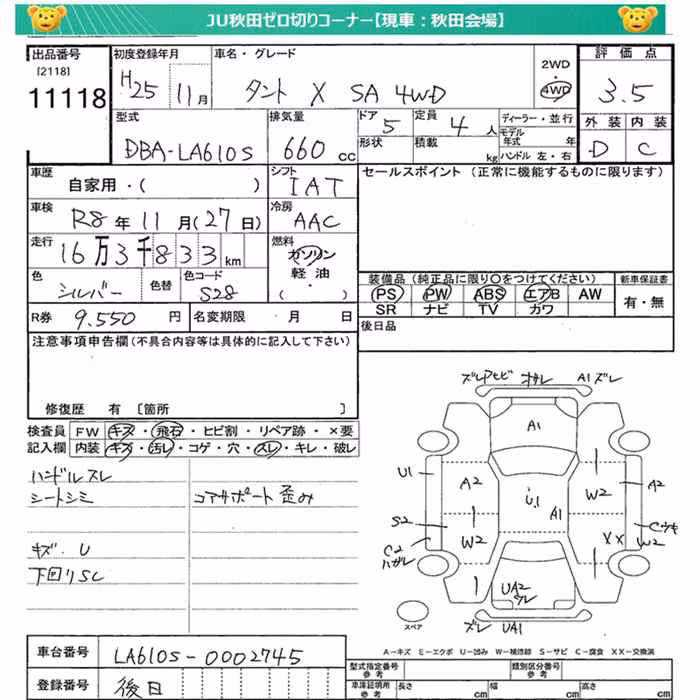 JU秋田ゼロ切りコーナー【現車：秋田会場】
出品番号 初度登録年月 車名・グレード 2WD 評価点
[2118] 11118 H25 11月 タント X SA 4WD 4WD 3.5
型式 排気量 ドア 5 定員 4人 ディーラー・並行 外装 内装
DBA-LA610S 660cc 形状 積載 kg モデル年式 年 ハンドル 左・右 D C
車歴 シフト セールスポイント（正常に機能するものに限ります）
自家用・( ) IAT
車検 R8年11月(27日) 冷房 AAC
走行 16万3千833km 燃料 ガソリン 軽油 ・( )
色 シルバー 色替 色コード S28
装備品（純正品に限り○をつけてください） 新車保証書
PS PW ABS エアB AW 有・無
SR ナビ TV カワ
R券 9.550円 名変期限 月 日 後日品
注意事項申告欄(不具合内容等は具体的に記入して下さい)
修復歴 有 [箇所 ]
検査員 FW キズ・飛石・ヒビ割・リペア跡・×要
記入欄 内装 キズ・汚レ・コゲ・穴・スレ・キレ・破レ
ハンドルスレ
シートシミ コアサポート歪み
キズ.U
下回りSC
ズレ アセビ オサレ A1 ズレ
A1
U1 A2 U.1 A1 W2 A2
S2 W2 XX W2 Cウキ
C2 ハガレ
UA2 ワレ
スペア ズレ UA1
A－キズ E－エクボ U－凹み W－補修跡 S－サビ C－腐食 XX－交換済
車台番号 LA610S-0002745 型式指定番号 参考 類別区分番号 参考
登録番号 後日 車庫証明用 参考 長さ cm 幅 cm 高さ cm